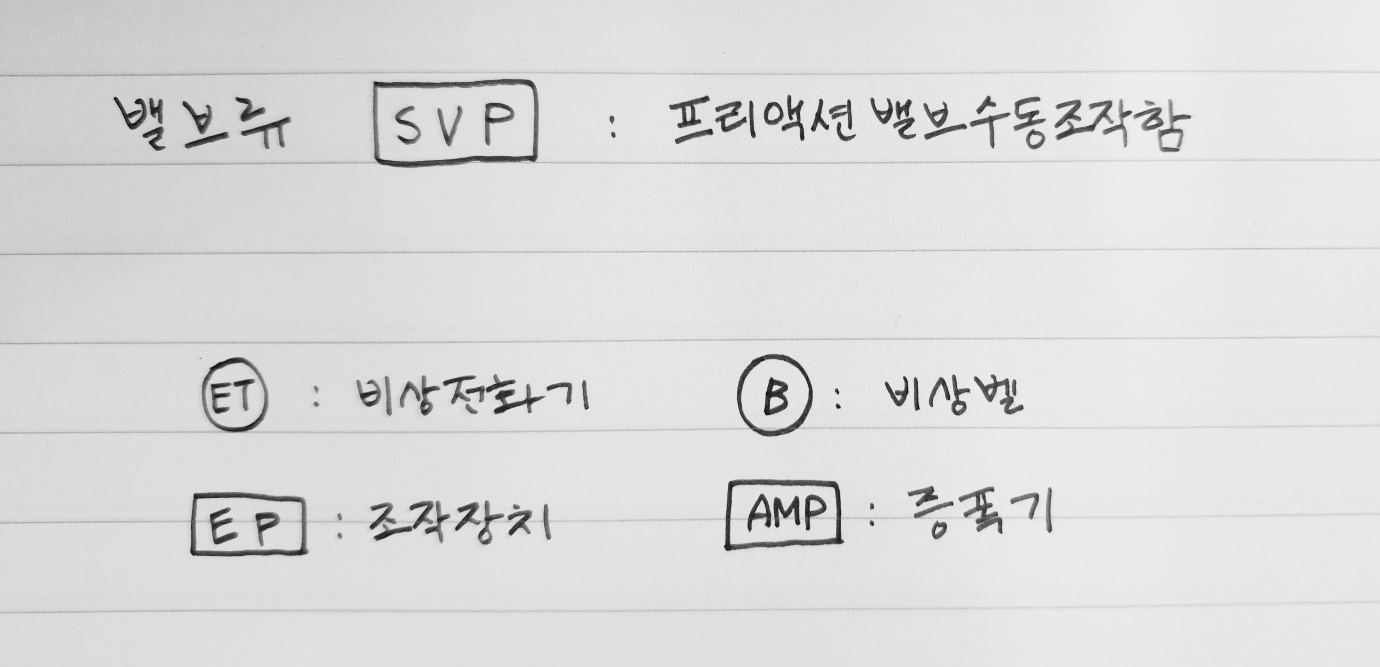 밸브류 SVP : 프리액션 밸브수동조작함
ET : 비상전화기 B : 비상벨
EP : 조작장치 AMP : 증폭기